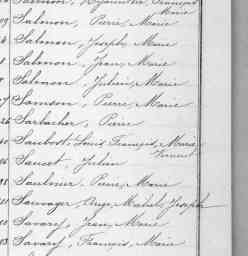 Salmon, Hyacinthe, François
Marie
Salmon, Pierre, Marie
Salmon, Joseph, Marie
Salmon, Jean, Marie
Salmon, Julien, Marie
Samson, Pierre, Marie
26 Sarbacher, Pierre
Saubost, Louis François, Marie
Vincent
Saucet, Julien
Saulnier, Pierre, Marie
Sauvager, Ange, Mathile, Joseph
Savary, Jean, Marie
Savary, François, Marie